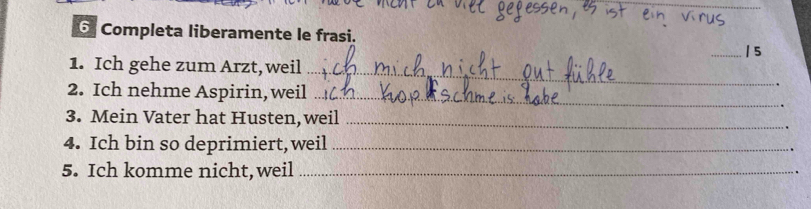 nicht zu viel gegessen, es ist ein virus
6 Completa liberamente le frasi.
/ 5
1. Ich gehe zum Arzt, weil ich mich nicht gut fühle.
2. Ich nehme Aspirin, weil ich Kopfschmeis habe.
3. Mein Vater hat Husten, weil
4. Ich bin so deprimiert, weil
5. Ich komme nicht, weil